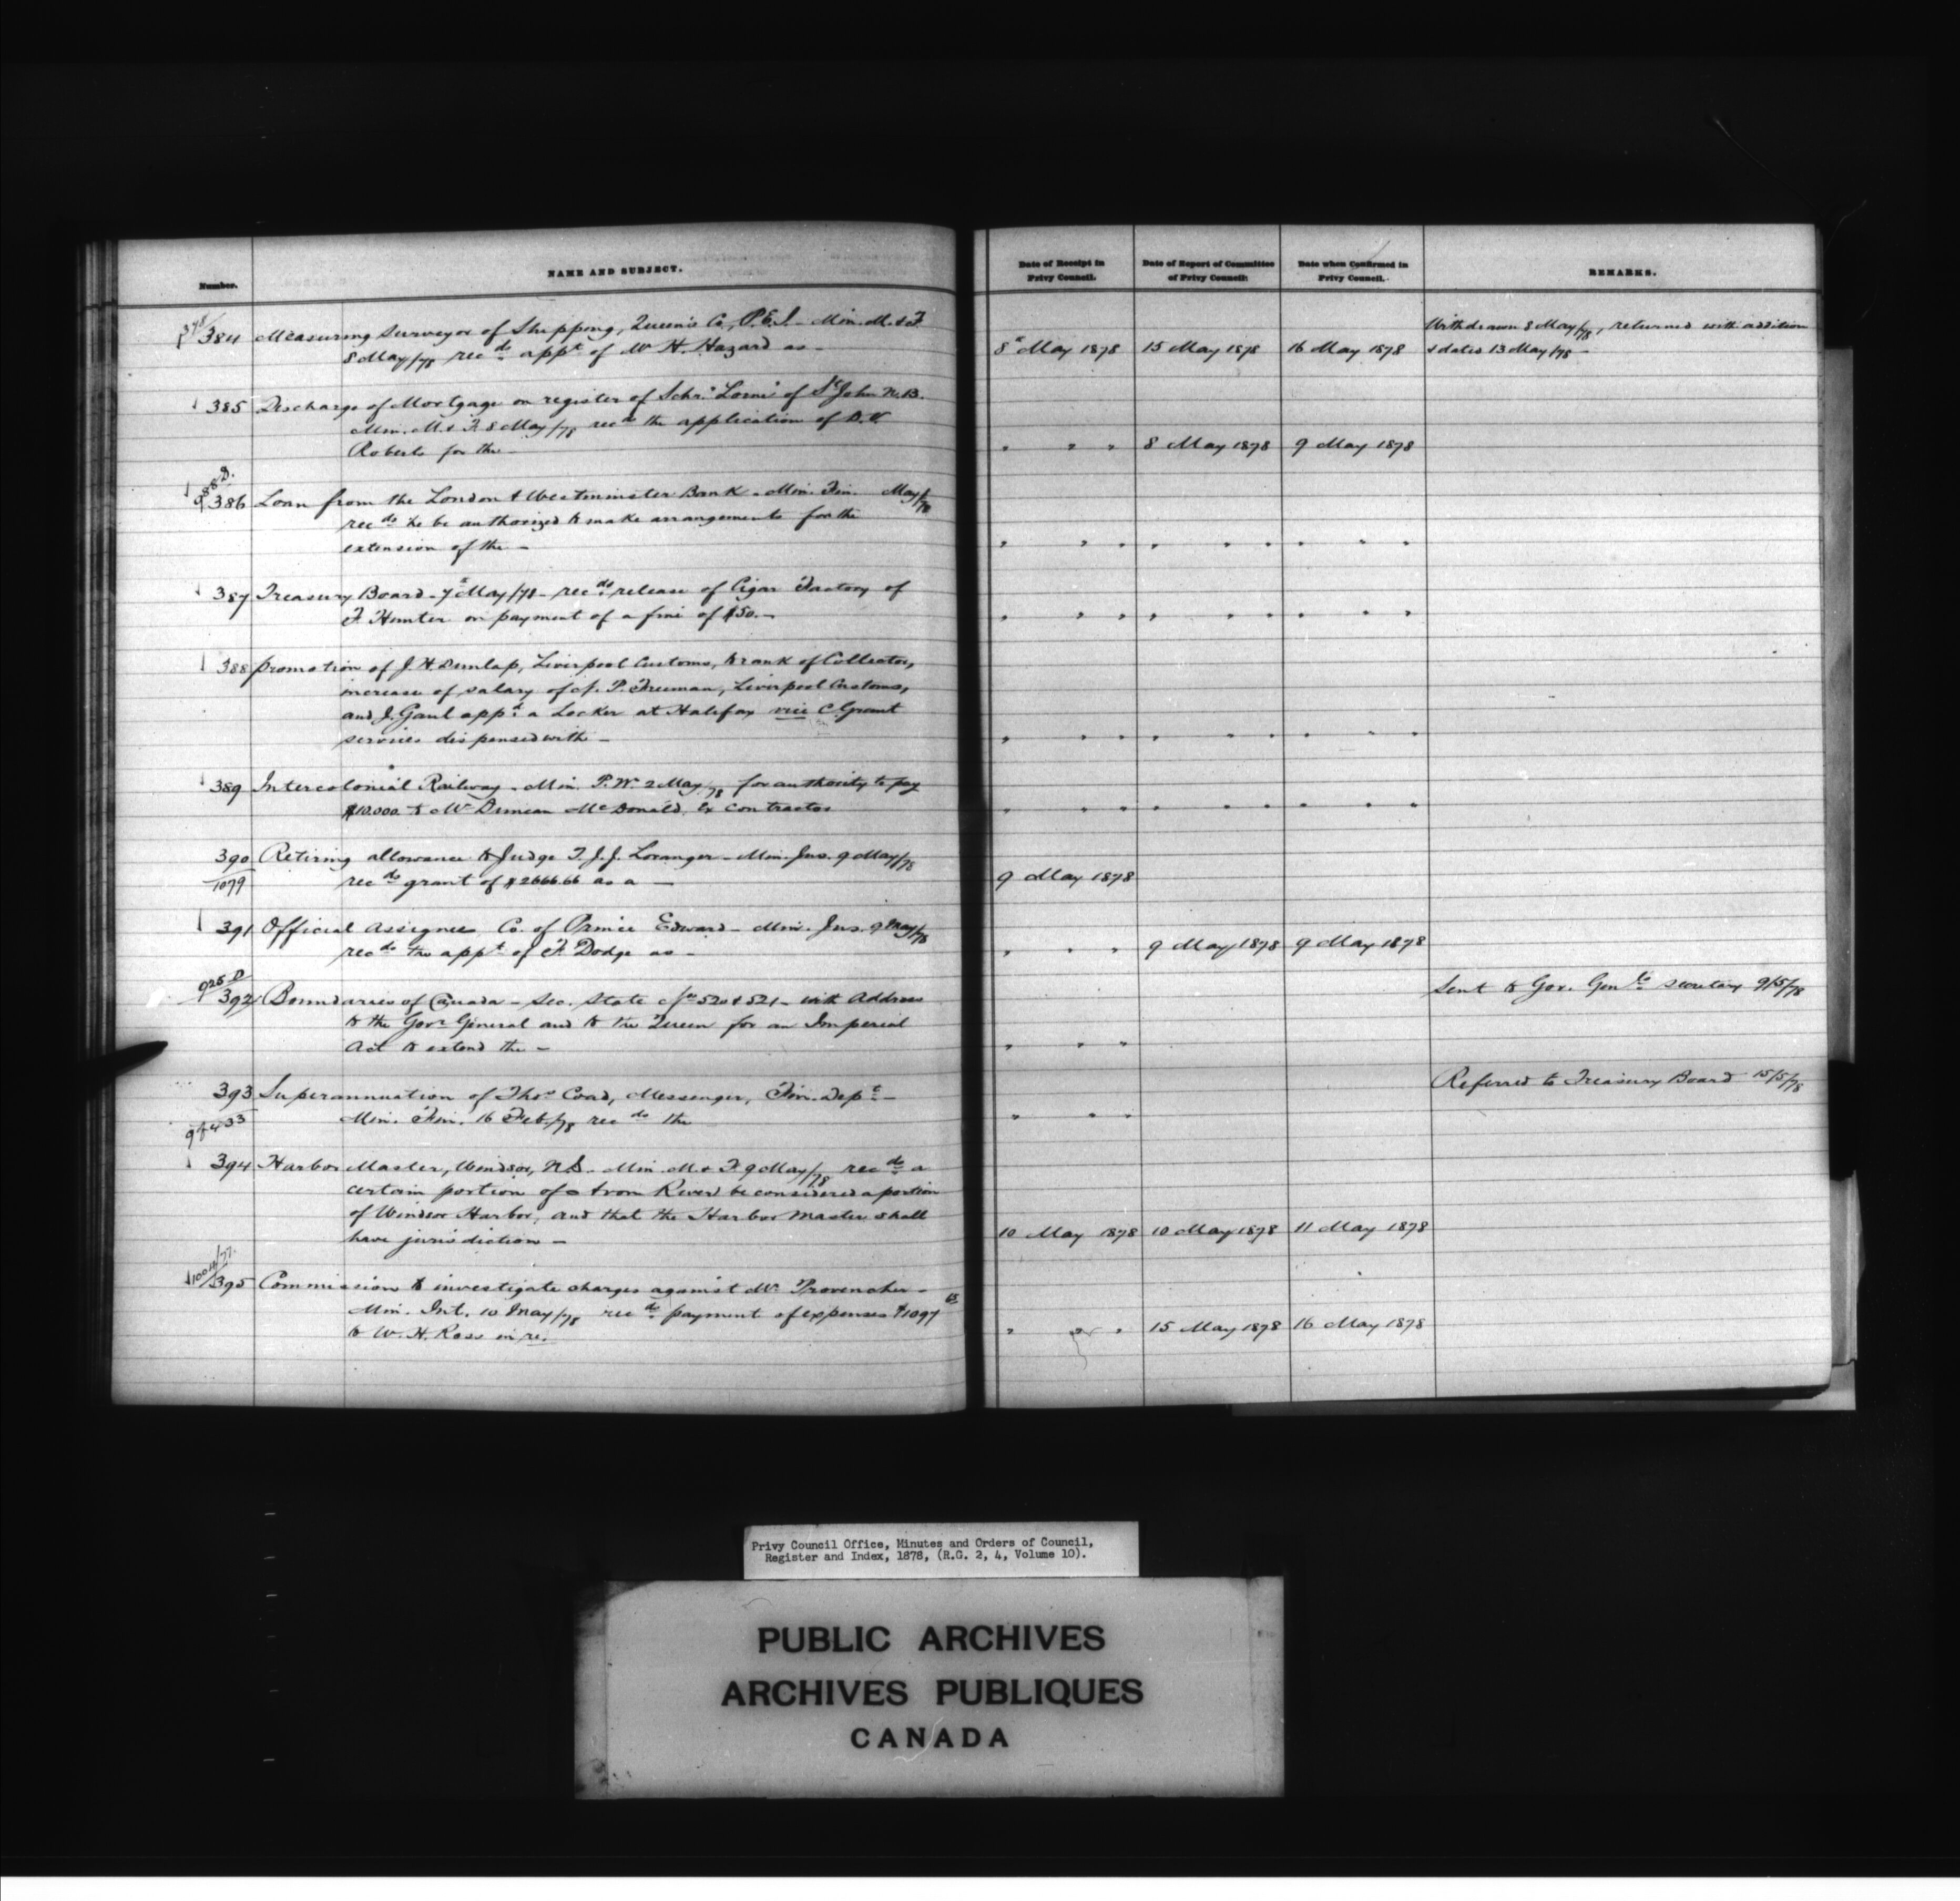 Number. NAME AND SUBJECT. Date of Receipt in Privy Council. Date of Report of Committee of Privy Council. Date when Confirmed in Privy Council. REMARKS.
378/384 Measuring Surveyor of Shipping, Queen's Co, P.E.I. - Min. M. & F.
8 May/78 recds appt of W. H. Hazard as - 8th May 1878 15 May 1878 16 May 1878 Withdrawn 8 May/78, returned with addition
& dates 13 May/78 -
385 Discharge of Mortgage on register of Schr. "Lorne" of St John N.B.
Min. M. & F. 8 May/78 recds the application of D. V.
Roberts for the - " " " 8 May 1878 9 May 1878
386 Loan from the London & Westminster Bank - Min. Fin. May/78
recds he be authorized to make arrangements for the
extension of the - " " " " " " " " "
387 Treasury Board - 7th May/78 - recds release of Cigar Factory of
F. Hunter on payment of a fine of $50. - " " " " " " " " "
388 promotion of J. H. Dunlap, Liverpool Customs, to rank of Collector,
increase of salary of J. P. Freeman, Liverpool Customs,
and J. Gaul appd a Locker at Halifax vice C. Grant
services dispensed with - " " " " " " " " "
389 Intercolonial Railway - Min. P.W. 2 May/78 for authority to pay
$10.000 to Mr Duncan McDonald, Ex Contractor " " " " " " " " "
390 Retiring allowance to Judge T. J. J. Loranger - Min. Jus. 9 May/78
1079 recds grant of $2666.66 as a - 9 May 1878
391 Official Assignee, Co. of Prince Edward - Min. Jus. 9 May/78
recds the appt of F. Dodge as - " " " 9 May 1878 9 May 1878
925 D
392 Boundaries of Canada - Sec. State 520 & 521 - with Address Sent to Gov. Genls secretary 9/5/78
to the Govr General and to the Queen for an Imperial
Act to extend the - " " "
393 Superannuation of Thos Coad, Messenger, Fin. Dept - Referred to Treasury Board 15/5/78
Min. Fin. 16 Feb/78 recds the " " "
394 Harbor Master, Windsor, N.S. - Min. M. & F. 9 May/78 recds a
certain portion of Avon River be considered a portion
of Windsor Harbor, and that the Harbor Master shall
have jurisdiction - 10 May 1878 10 May 1878 11 May 1878
1004/77.
395 Commission to investigate charges against Mr Provencher -
Min. Int. 10 May/78 recds payment of expenses $1097
to W. H. Ross in re. " " " 15 May 1878 16 May 1878
Privy Council Office, Minutes and Orders of Council,
Register and Index, 1878, (R.G. 2, 4, Volume 10).
PUBLIC ARCHIVES
ARCHIVES PUBLIQUES
CANADA